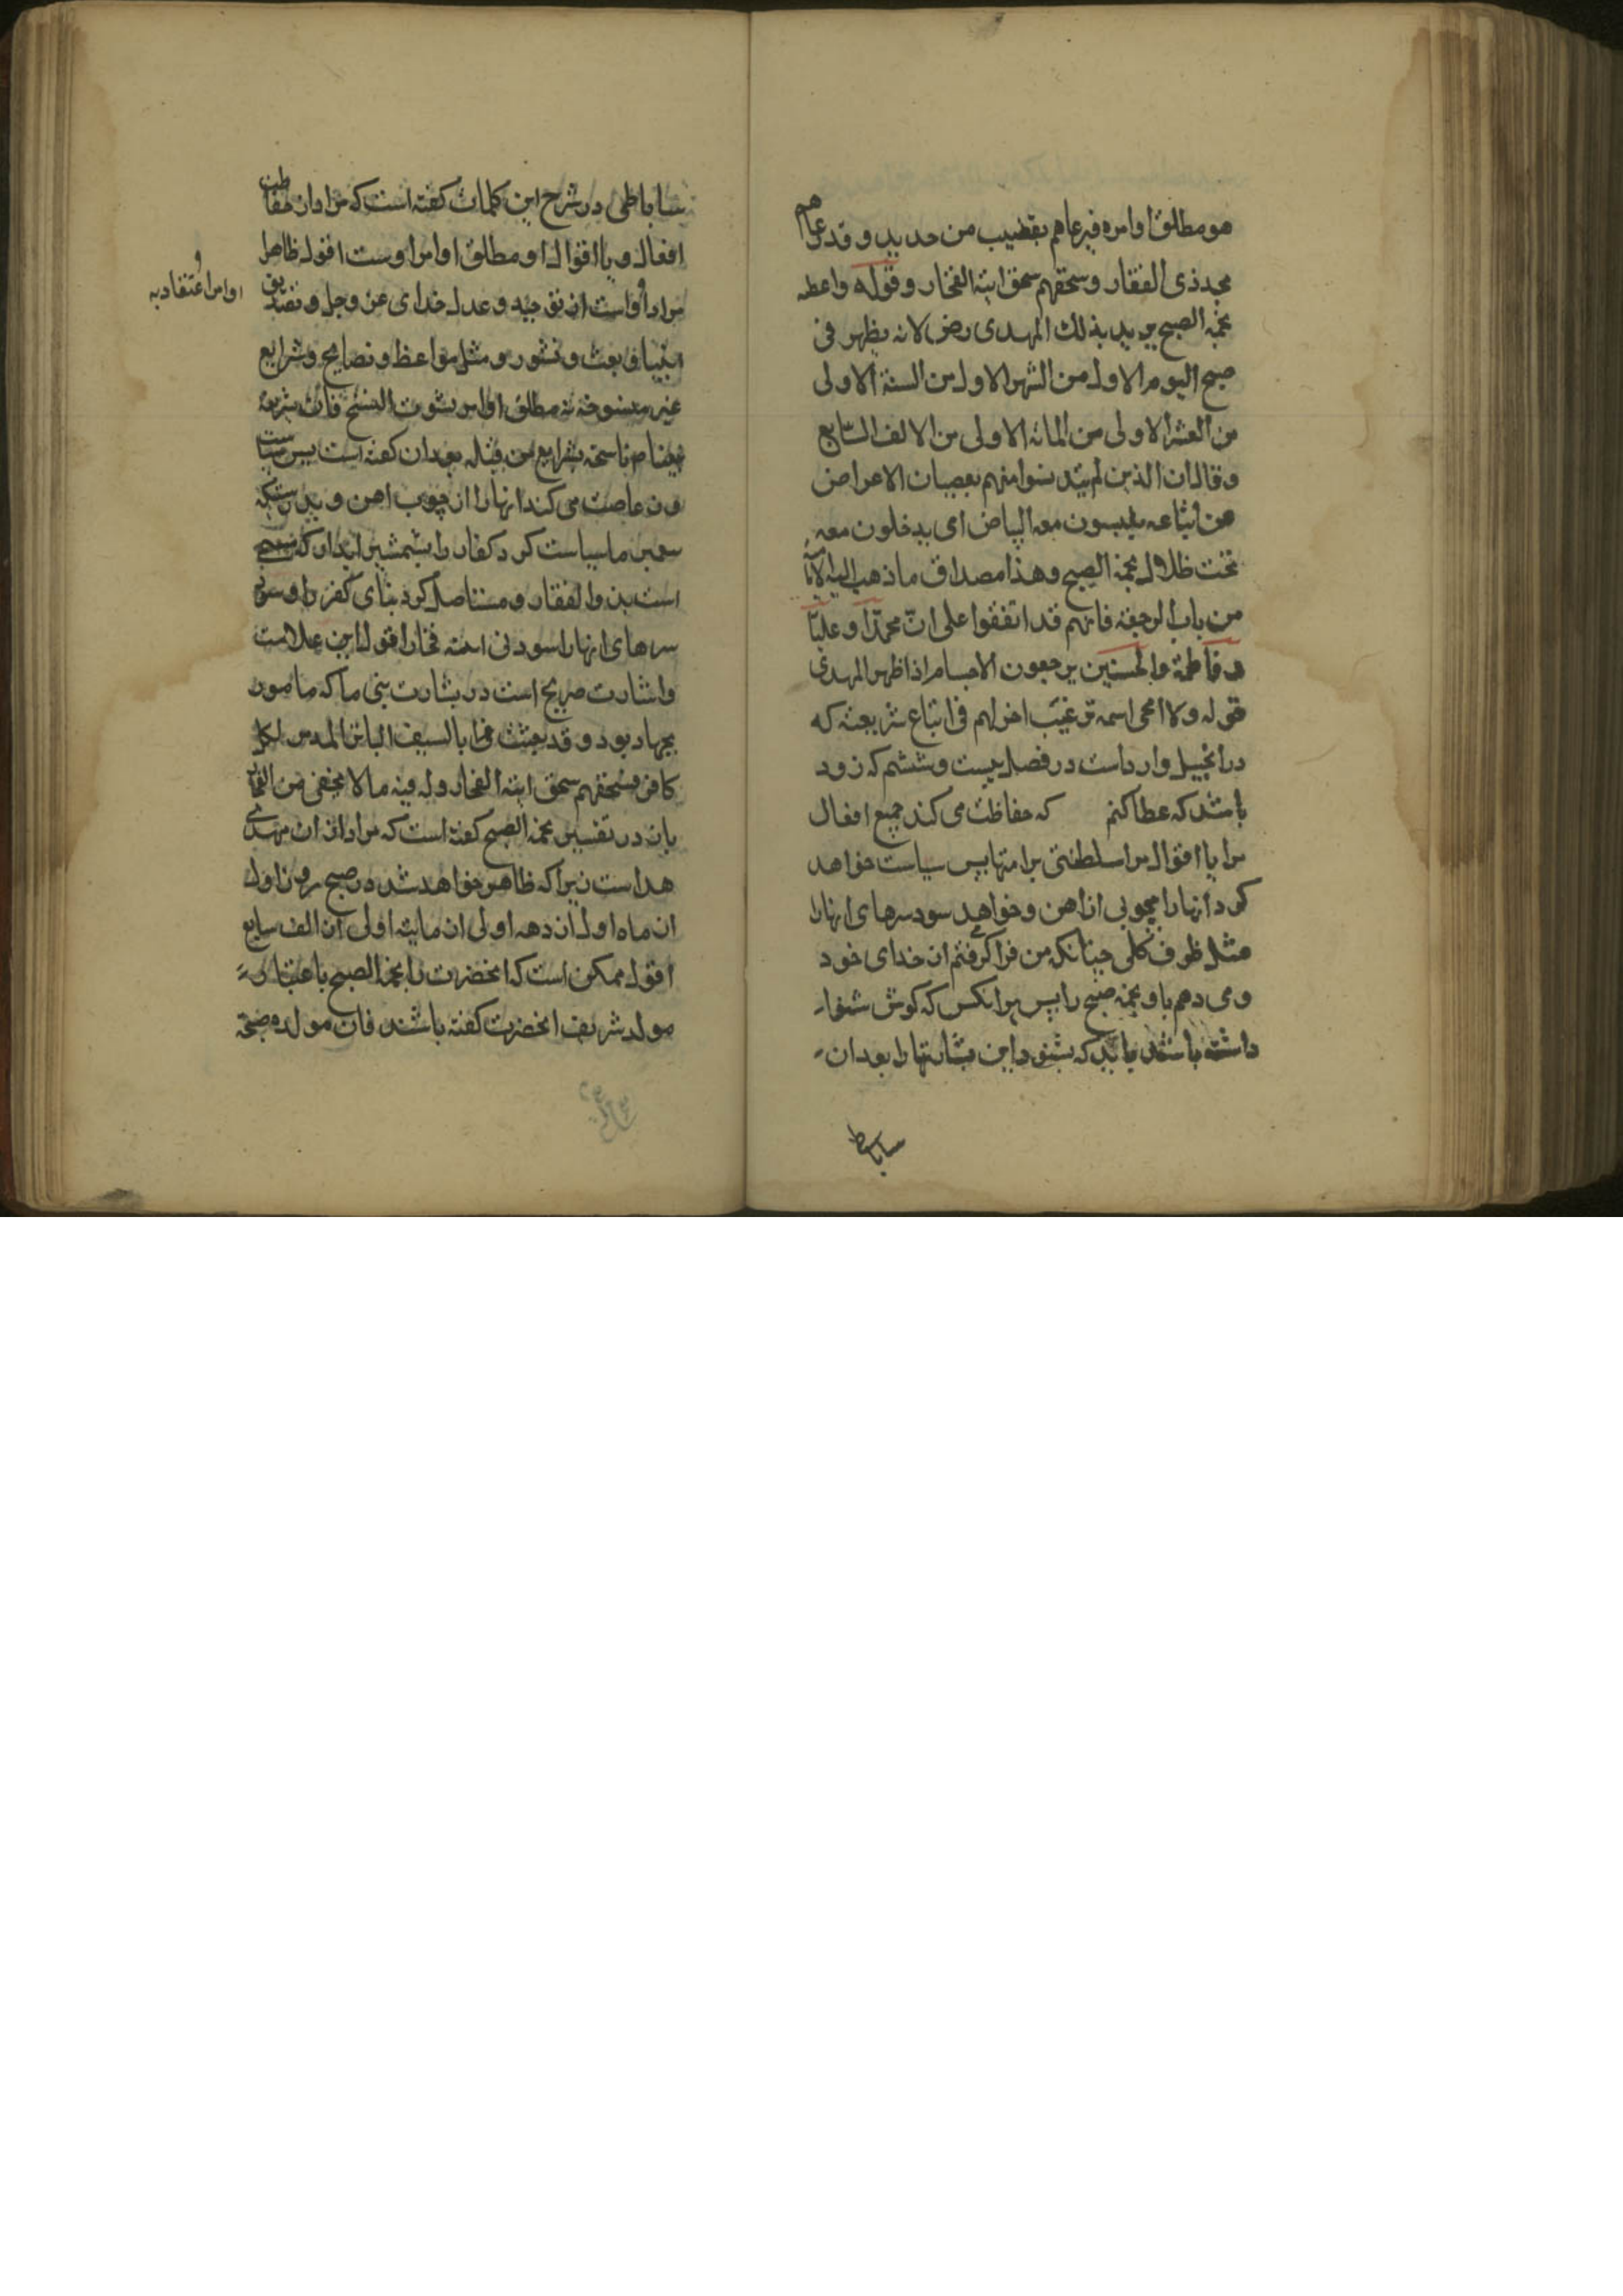 هو مطلق اوامره فیرعاهم بقضیب من حدید وقد رعاهم
بحد ذی الفقار وسحقهم سحق انیة الفخار وقوله واعطه
نجمة الصبح یرید بذلك المهدی رض لانه یظهر فی
صبح الیوم الاول من الشهر الاول من السنة الاولی
من العشر الاولی من المائة الاولی من الالف السابع
وقال ان الذین لم یتدنسوا منهم بعصیان الاعراض
عن اتباعه یلبسون معه البیاض ای یدخلون معه
تحت ظلال نجمة الصبح وهذا مصداق ما ذهب الیه الامامیة
من باب الرجعة فانهم قد اتفقوا علی انّ محمّداً وعلیّاً
وفاطمة والحسنین یرجعون الاجسام اذا ظهر المهدی
قوله ولا امحی اسمه ترغیب اخر لهم فی اتباع شریعته که
در انجیل وارد است در فصل بیست وششم که زود
باشد که عطا کنم که حفاظت می کند جمیع افعال
مرا یا اقوال مرا سلطنتی بر امتها پس سیاست خواهد
کرد انها را بچوبی از اهن وخواهد سود سرهای انها را
مثل ظرف گلی چنانکه من فرا گرفتم از خدای خود
ومی دهم باو نجمه صبح را پس هر انکس که گوش شنوا
داشته باشد باید که بشنود این بشارتها را بعد از
ساباطی
ساباطی در شرح این کلمات گفته است که مراد از حفاظت
افعال و یا اقوال او مطلق اوامر اوست اقول ظاهرا
مراد اوامر اعتقادیه او است از توحید و عدل خدای عز وجل و تصدیق
انبیا و بعث و نشور و مثل مواعظ و نصایح وشرایع
غیر منسوخه نه مطلق اوامر بثبوت النسخ فان شریعة
ناسخة شرایع من قبله بعد ان گفته است پس سیاست
می کند انها را از چوب اهن و بدرستیکه
پیغمبر ما سیاست کرد کفار را بشمشیر ابدار که
است بذو الفقار و مستاصل کرد بنای کفر را و سود
سرهای انها را سودنی انیه فخار اقول این علامت
واشارت صریح است در بشارت نبی ما که مامور
بجهاد بود و قد بعثت بالسیف الباتر المدمر لکل
کافر فسحقهم سحق انیة الفخار و له فیه ما لا یخفی من الفخار
باز در تفسیر نجمة الصبح گفته است که مراد از ان مهدی
هدا است زیرا که ظاهر خواهد شد در صبح روز اول
از ماه اول از دهه اولی از مایه اولی از الف سابع
اقول ممکن است که انحضرت را نجمة الصبح باعتبار
مولد شریف انحضرت گفته باشند فان مولده صبحة